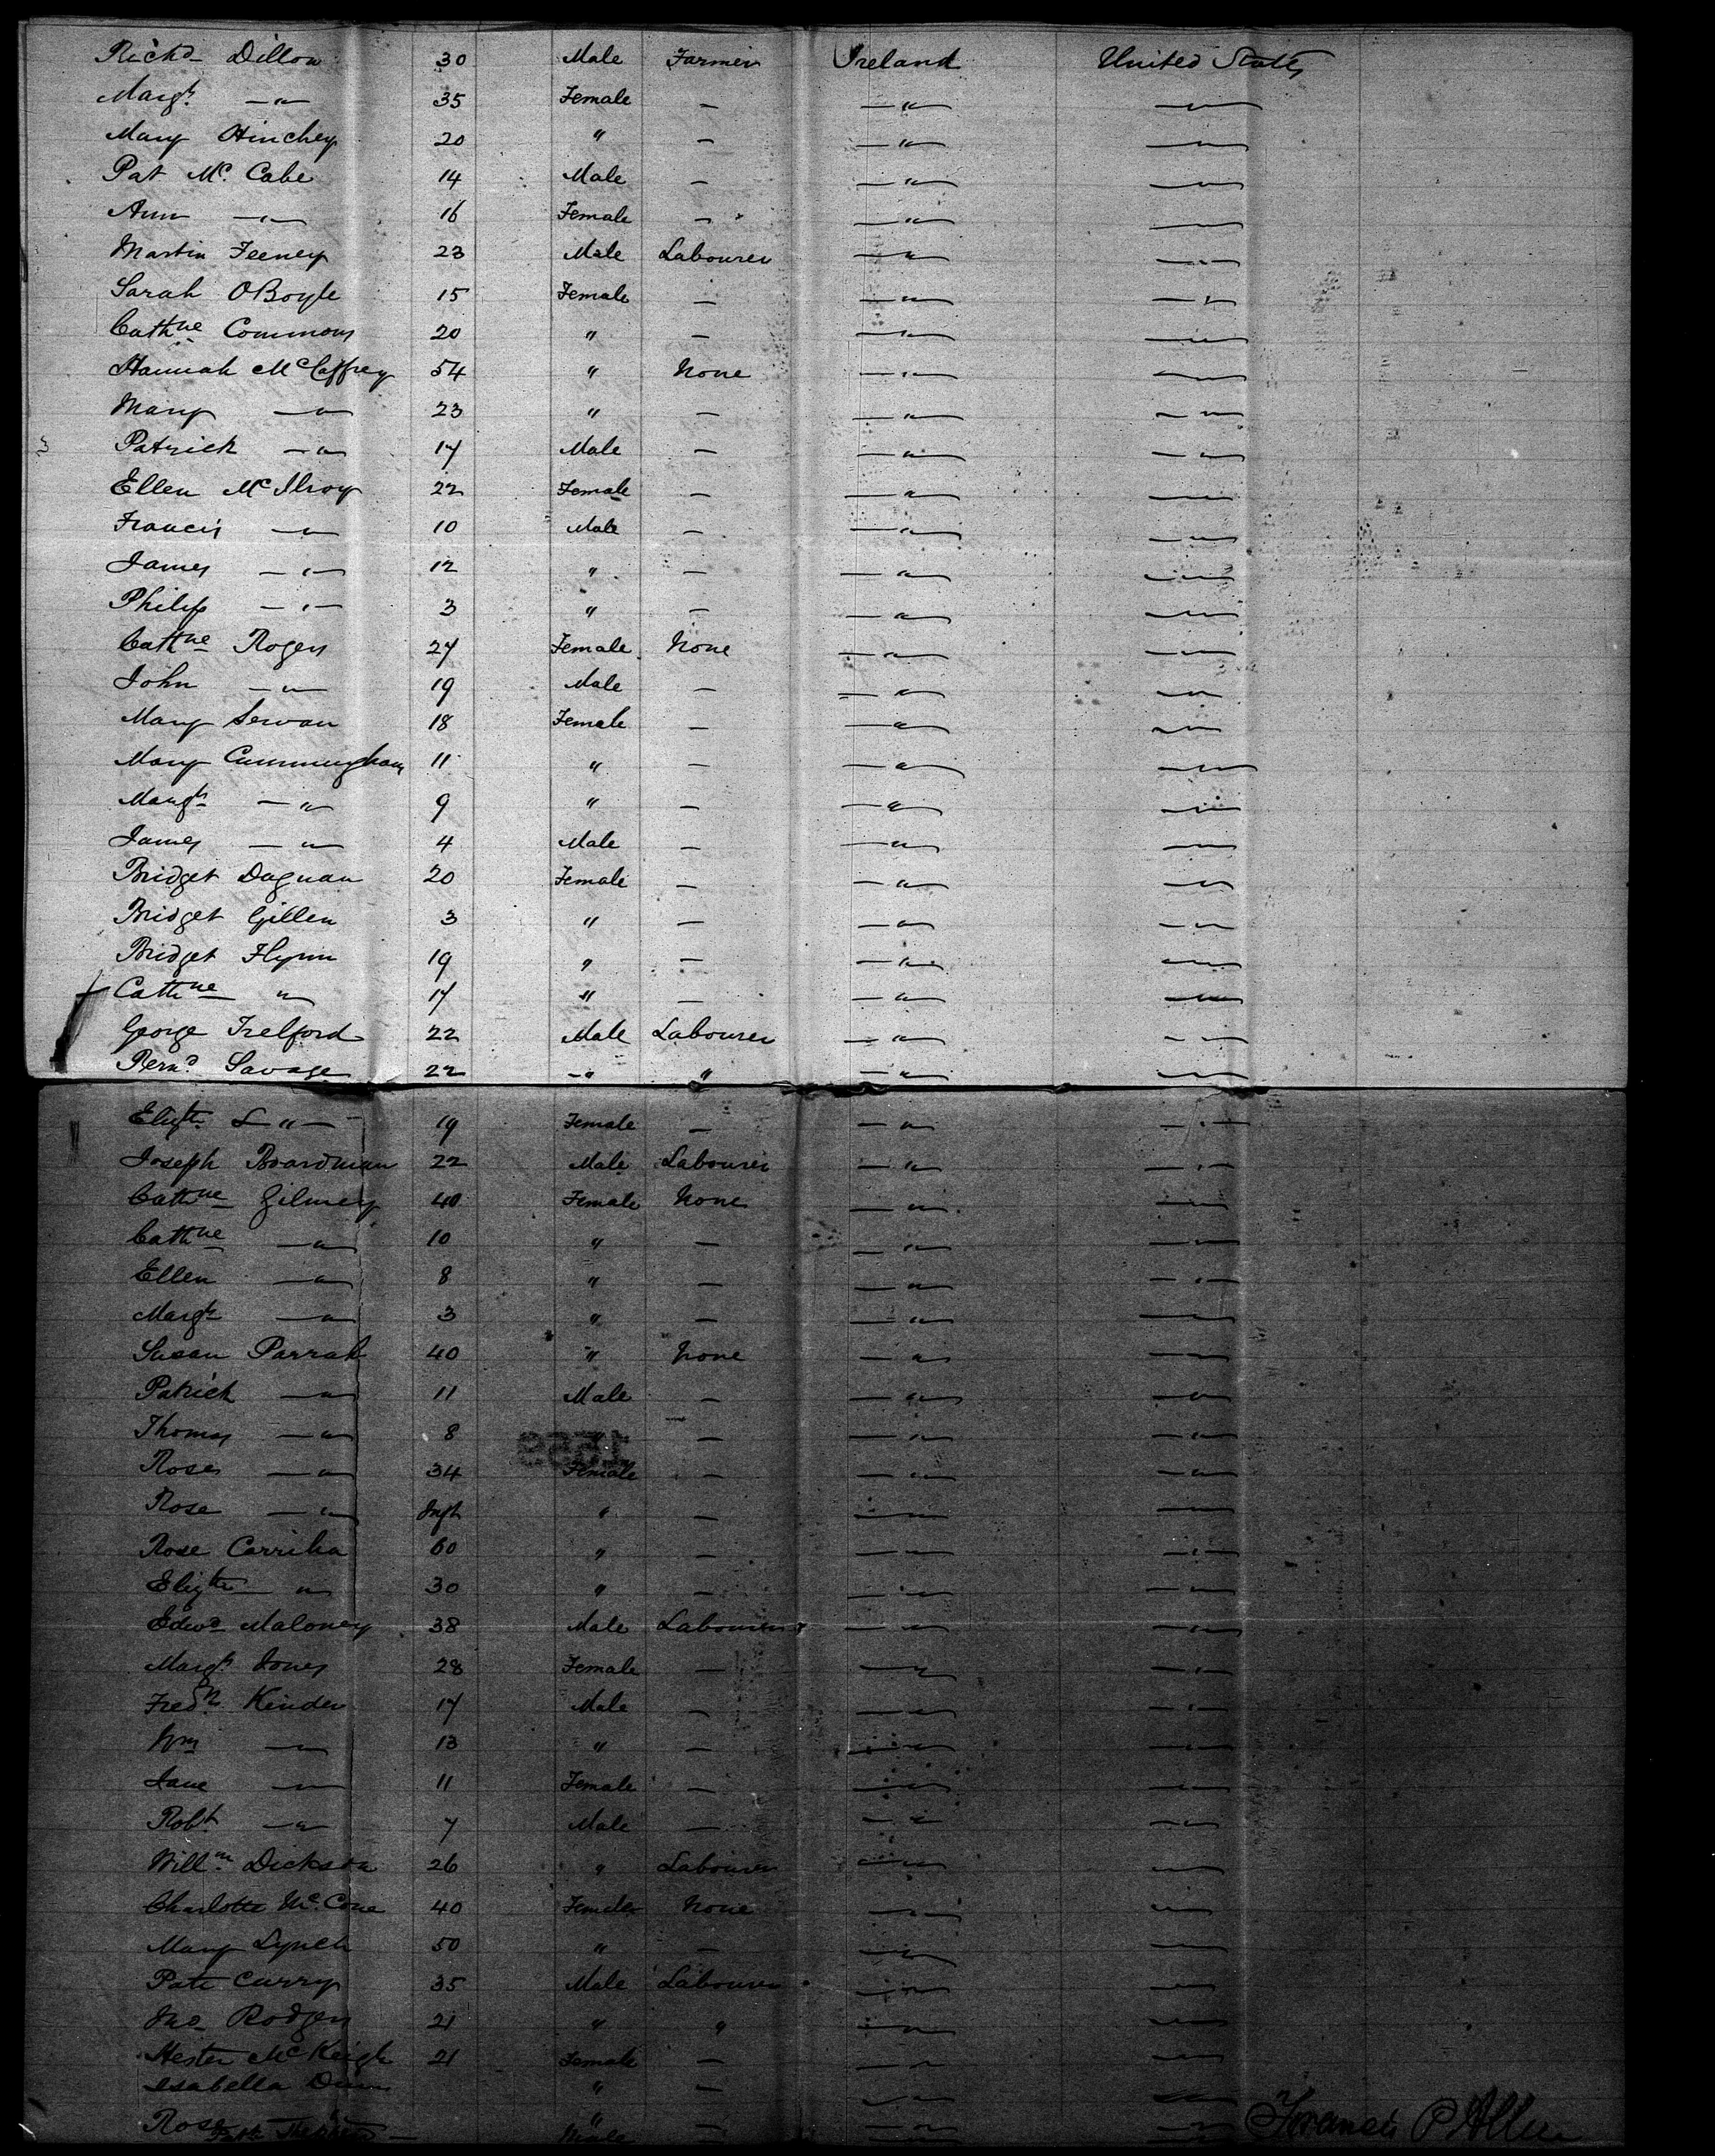 Richd Dillon 30 Male Farmer Ireland United States
Margt — " — 35 Female — — " — — " —
Mary Hinchey 20 " — — " — — " —
Pat Mc Cabe 14 Male — — " — — " —
Ann — " — 16 Female — — " — — " —
Martin Feeney 23 Male Labourer — " — — " —
Sarah OBoyle 15 Female — — " — — " —
Cathne Commons 20 " — — " — — " —
Hannah McCaffrey 54 " None — " — — " —
Mary — " — 23 " — — " — — " —
Patrick — " — 17 Male — — " — — " —
Ellen McIlroy 22 Female — — " — — " —
Francis — " — 10 Male — — " — — " —
James — " — 12 " — — " — — " —
Philip — " — 3 " — — " — — " —
Cathne Rogers 24 Female None — " — — " —
John — " — 19 Male — — " — — " —
Mary 18 Female — — " — — " —
Mary Cunningham 11 " — — " — — " —
Margt — " — 9 " — — " — — " —
James — " — 4 Male — — " — — " —
Bridget Dagnan 20 Female — — " — — " —
Bridget Gillen 3 " — — " — — " —
Bridget Flynn 19 " — — " — — " —
Cathne " 17 " — — " — — " —
George Trelford 22 Male Labourer — " — — " —
Bernd Savage 22 — " " — " — — " —
Elizth — " — 19 Female — — " — — " —
Joseph Boardman 22 Male Labourer — " — — " —
Cathne Gilmey 40 Female None — " — — " —
Cathne — " — 10 " — — " — — " —
Ellen — " — 8 " — — " — — " —
Margt — " — 3 " — — " — — " —
Susan Parrah 40 " None — " — — " —
Patrick — " — 11 Male — — " — — " —
Thomas — " — 8 — — " — — " —
Rose — " — 34 Female — — " — — " —
Rose — " — Inft " — — " — — " —
Rose Carriha 60 " — — " — — " —
Elizth " 30 " — — " — — " —
Edwd Maloney 38 Male Labourer — " — — " —
Margt Jones 28 Female — — " — — " —
Fredk Kinder 17 Male — — " — — " —
Wm — " — 13 " — — " — — " —
Jane — " — 11 Female — — " — — " —
Robt — " — 7 Male — — " — — " —
Willm Dickson 26 " Labourer — " — — " —
Charlotte McCone 40 Female None — " — — " —
Mary Lynch 50 " — — " — — " —
Patk Curry 35 Male Labourer — " — — " —
Jno Rodgers 21 " " — " — — " —
Hester McKeigh 21 Female — — " — — " —
Isabella " — — " — — " —
Rose " — — " — — " —
Male — — " — — " —
Francis P Allen